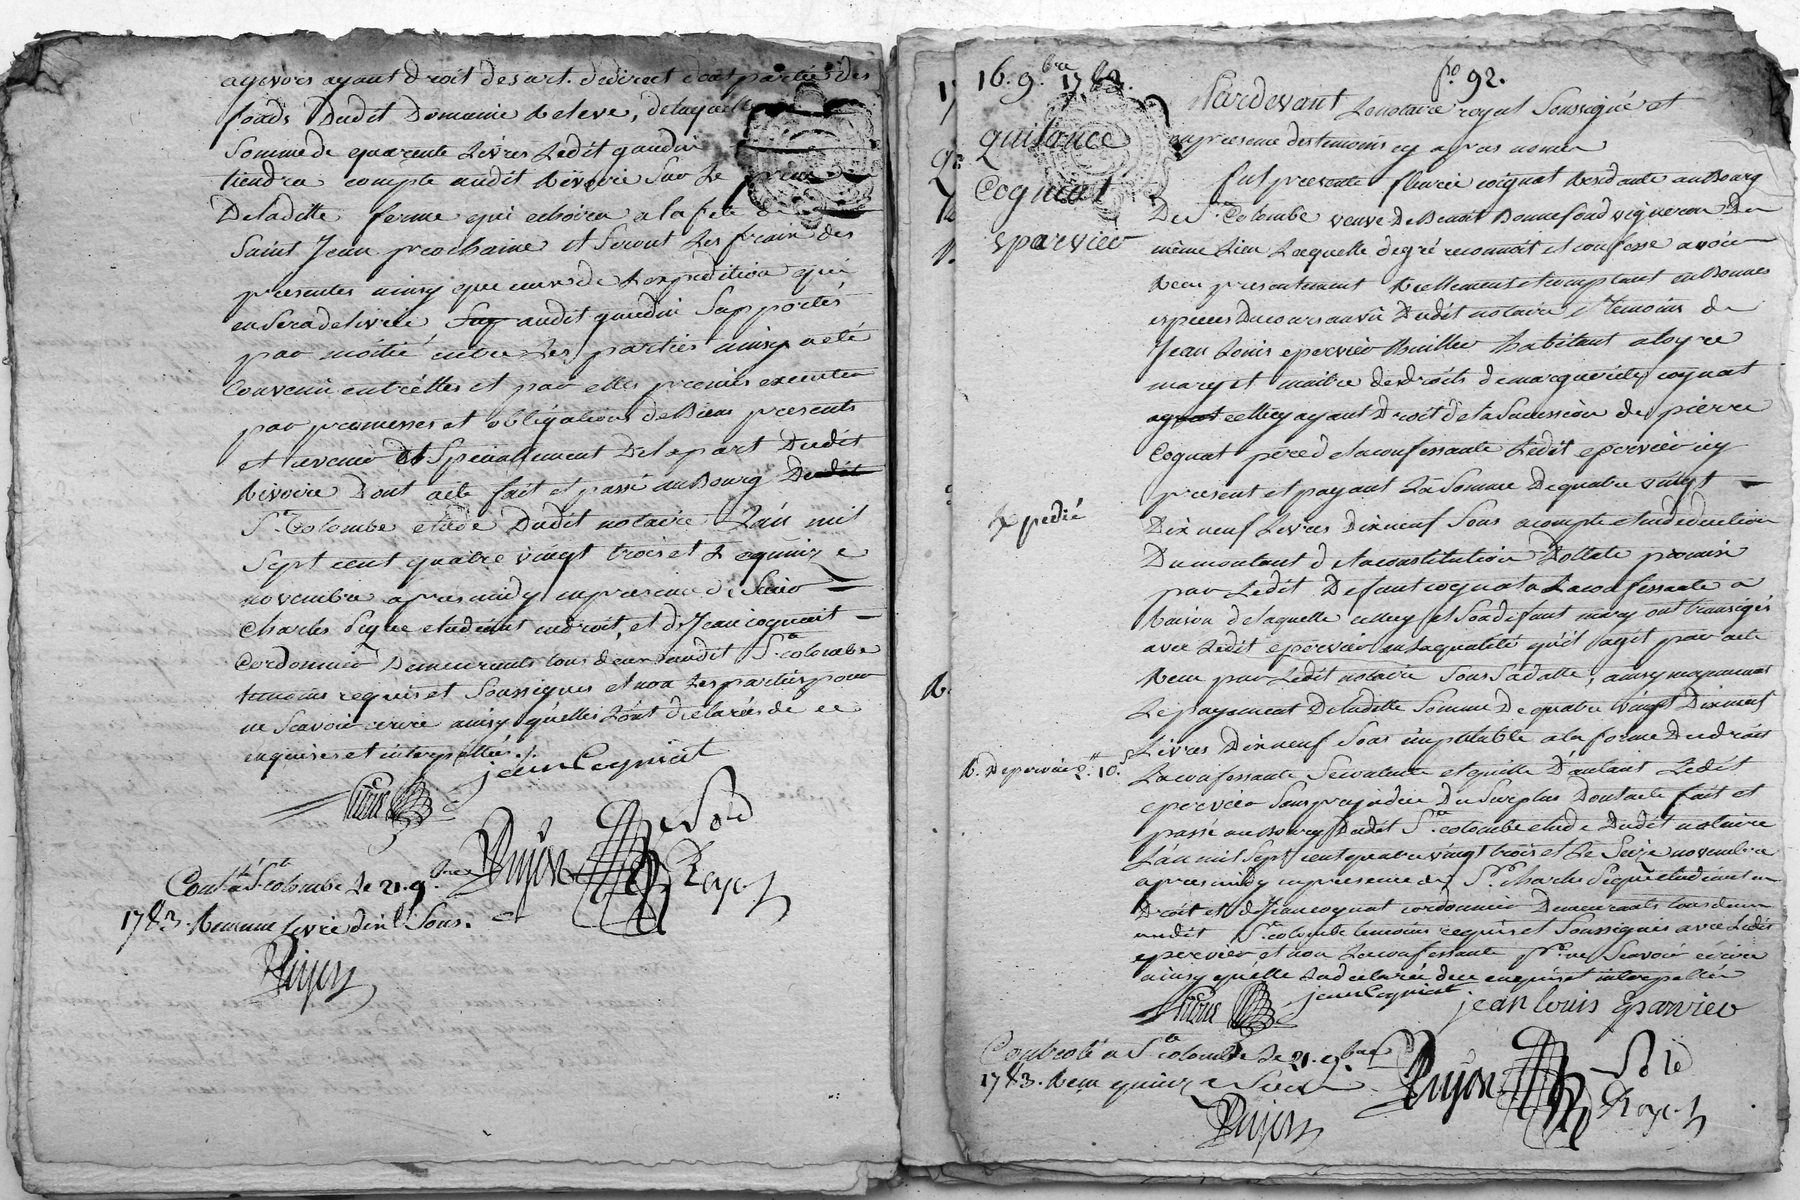 ayevoes ayant droit des art. dedirect dont partie des
fonds Dudit Domaine Releve, delaquelle
Somme de quarente Livres Ledit gaudin
tiendra compte audit Rivoire Sur Le prix
Deladitte ferme qui echoira a la fete de
Saint Jean prochaine et Seront Les frais des
presentes ainsy que ceux de Lexpedition qui
en Sera delivrée audit gaudin Supportés
par moitié entre Les parties ainsy a eté
Convenu entr'elles et par elles promis executer
par promesses et obligations de Biens presents
et avenir et Specialement De la part Dudit
Rivoire Dont acte fait et passé au Bourg Dudit
Ste Colombe etude Dudit notaire L'an mil
Sept cent quatre vingt trois et Le quinze
novembre apres midy en presence de Sieur
Charles Peque etudiant en droit, et de Jean cognat
Cordonnier Demeurants tous deux audit Ste colombe
temoins requis et Soussignes et non Les parties pour
ne Scavoir ecrire ainsy qu'elles L'ont déclarées de ce
enquises et interpellées ./.
jean Cogniat
Pujon
Noté
Royal
Conllé a Ste colombe Le 21. 9bre
1783. Reçu une Livre dix Sous.
Pujon
16. 9bre 1783.
fo. 92.
quitance
Cogniat
Eparvier
Expedié
R. Deparvier 2ll 10s
Pardevant Le notaire royal Soussigné et
en presence des temoins cy apres només
fut presente fleurie cognat Residante au Bourg
De Ste Colombe veuve De Benoit Bonnefond vigneron Du
même Lieu Laquelle de gré reconnoit et confesse avoir
Reçu presentement Reellement et comptant en Bonnes
especes Du cours au vû Dudit notaire et Temoins de
Jean Louis eparvier habitant a Loyre
mary et maitre des droits de marguerite cognat
cellecy ayant Droit de la Succession de pierre
Cognat pere de la confessante Ledit eparvier icy
present et payant La Somme De quatre vingt
Dix neuf Livres Dix neuf Sous acompte et en deduction
Du montant de la constitution Dottale promise
par Ledit Defunt cognat a La confessante a
Raison de laquelle cellecy et Son defunt mary ont transigés
avec Ledit eparvier en La qualité qu'il agit par acte
Reçu par Ledit notaire Sous Sa datte, ainsy moyennant
Le payement De ladite Somme De quatre vingt Dix neuf
Livres Dix neuf Sous imputable a la forme Du droit
La confessante Se contente et quitte D'autant Ledit
eparvier Sans prejudice Du Surplus Dont acte fait et
passé au Bourg Dudit Ste colombe etude Dudit notaire
L'an mil Sept cent quatre vingt trois et Le Seize novembre
apres midy en presence de Sr Charles Peque etudiant en
Droit et de Jean cognat cordonnier Demeurants tous deux
audit Ste colombe temoins requis et Soussignés avec Ledit
eparvier et non La confessante pr. ne Scavoir écrire
ainsy qu'elle L'a declarée de ce enquise et interpellée
jean Cogniat
jean louis Eparvier
Pujon
Noté
Royal
Controlé a Ste colombe Le 21. 9bre
1783. Reçu quinze Sous
Pujon